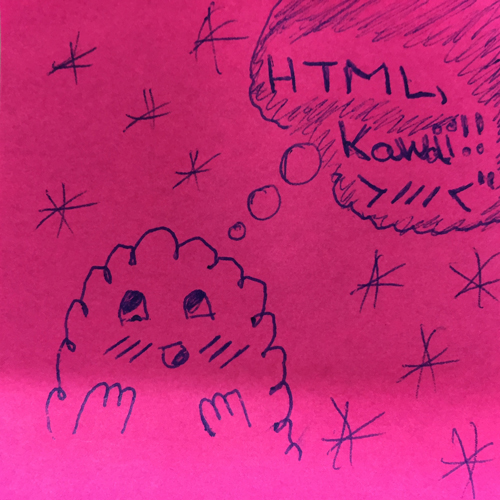 HTML,
Kawaii!!
>///<"